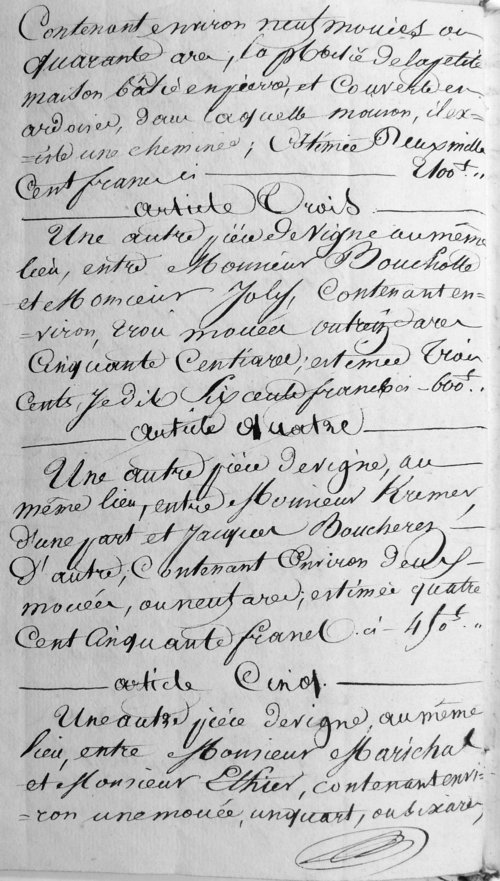 Contenant environ neuf mouées ou
quarante are, la moitié de la petite
maison bâtie en pierre, et Couverte en
ardoise, dans laquelle maison, il ex-
=iste une cheminée; Estimée Deux mille
Cent francs ci — 2100f. "
article Trois
Une autre pièce de Vigne au même
lieu, entre Monsieur Bouchotte
et Monsieur Joly, Contenant en-
=viron, trois mouées ou treize ares
Cinquante Centiares; estimée Trois
Cents, Je dis Six cents francs ci — 600f. "
article quatre
Une autre pièce de vigne, au
même lieu, entre Monsieur Kremer,
d'une part et Jacques Boucherez
D'autre, Contenant Environ deux
mouées, ou neuf ares; estimée quatre
Cent Cinquante francs. ci — 450f. "
article Cinq.
Une autre pièce de vigne, au même
lieu, entre Monsieur Marichal
et Monsieur Ethier, contenant envi-
=ron une mouée, un quart, ou six ares,